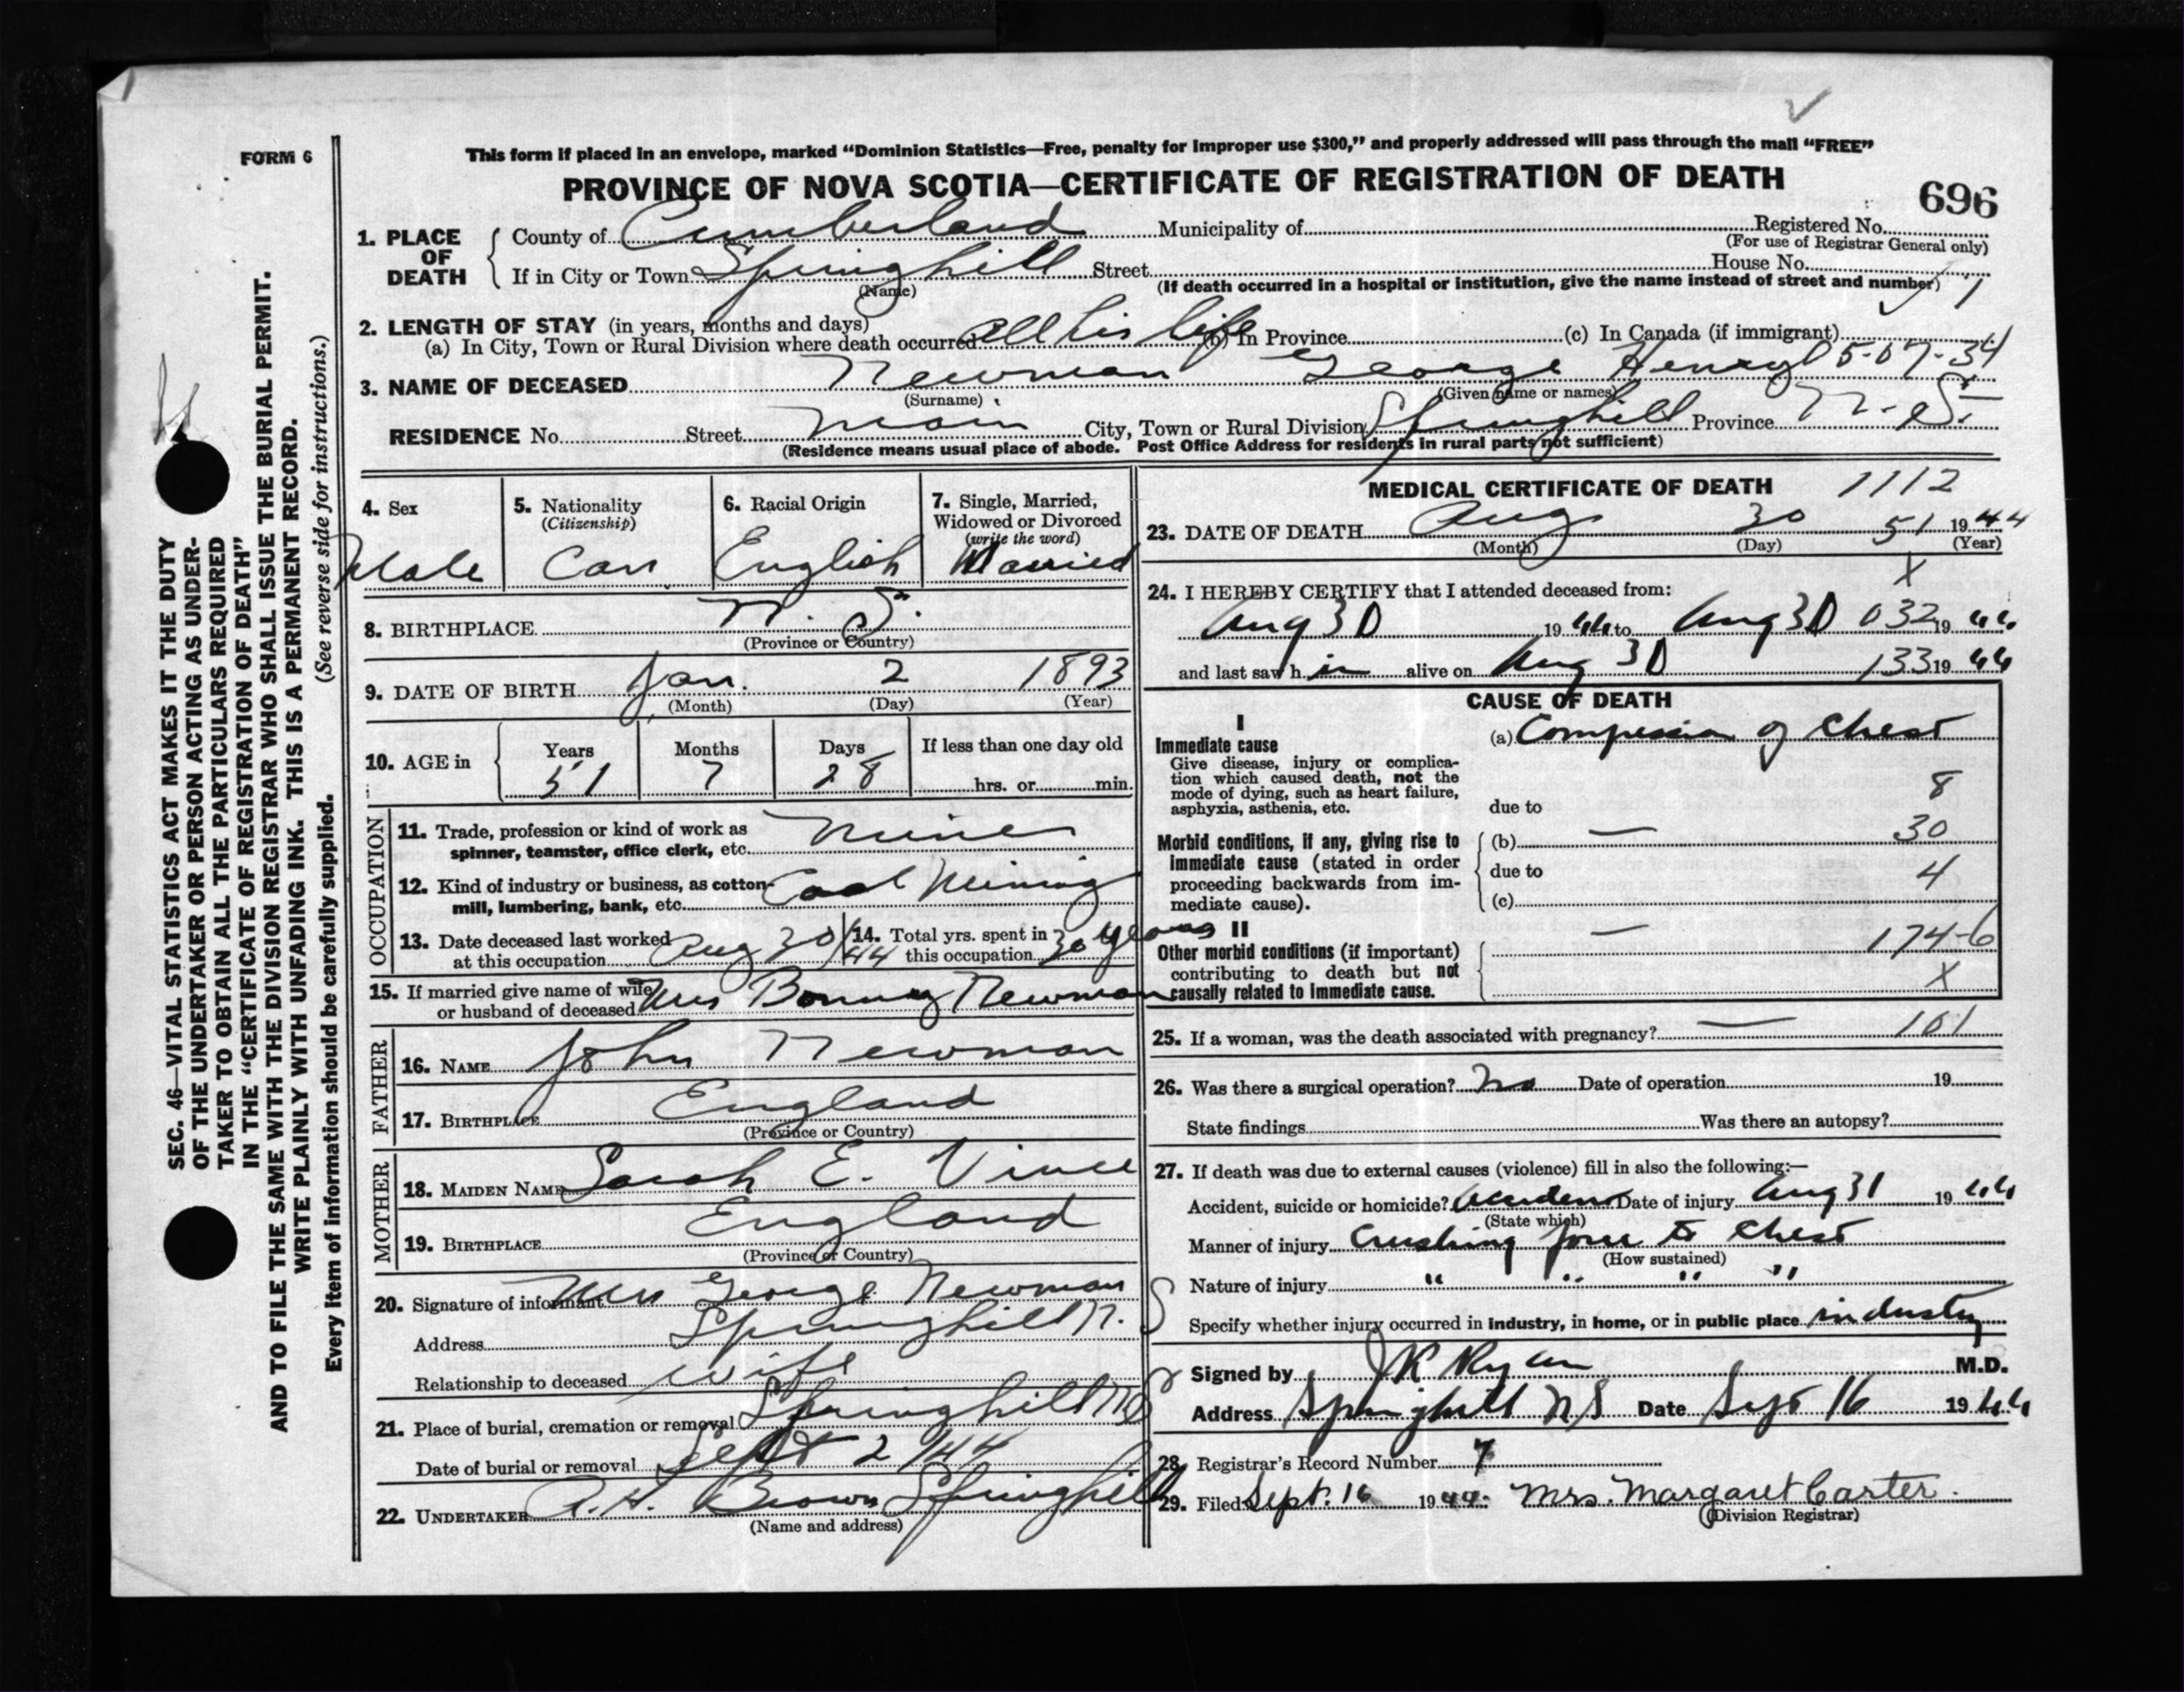 FORM 6
This form if placed in an envelope, marked “Dominion Statistics—Free, penalty for improper use $300,” and properly addressed will pass through the mail “FREE”
PROVINCE OF NOVA SCOTIA—CERTIFICATE OF REGISTRATION OF DEATH
696
1. PLACE OF DEATH
County of Cumberland Municipality of Registered No.
(For use of Registrar General only)
If in City or Town Springhill Street House No.
(Name) (If death occurred in a hospital or institution, give the name instead of street and number)
2. LENGTH OF STAY (in years, months and days)
(a) In City, Town or Rural Division where death occurred All his life (b) In Province (c) In Canada (if immigrant)
3. NAME OF DECEASED Newman George Henry 5-07-34
(Surname) (Given name or names)
RESIDENCE No. Street Main City, Town or Rural Division Springhill Province N.S.
(Residence means usual place of abode. Post Office Address for residents in rural parts not sufficient)
4. Sex
Male
5. Nationality
(Citizenship)
Can
6. Racial Origin
English
7. Single, Married,
Widowed or Divorced
(write the word)
Married
8. BIRTHPLACE N.S.
(Province or Country)
9. DATE OF BIRTH Jan. 2 1893
(Month) (Day) (Year)
10. AGE in
Years Months Days If less than one day old
51 7 28 hrs. or min.
OCCUPATION
11. Trade, profession or kind of work as
spinner, teamster, office clerk, etc. Miner
12. Kind of industry or business, as cotton-
mill, lumbering, bank, etc. Coal Mining
13. Date deceased last worked
at this occupation Aug 30/44
14. Total yrs. spent in
this occupation 30 years
15. If married give name of wife
or husband of deceased Mrs Bonny Newman
FATHER
16. NAME John Newman
17. BIRTHPLACE England
(Province or Country)
MOTHER
18. MAIDEN NAME Sarah E. Vince
19. BIRTHPLACE England
(Province or Country)
20. Signature of informant Mrs George Newman
Address Springhill N.S
Relationship to deceased wife
21. Place of burial, cremation or removal Springhill NS
Date of burial or removal Sept 2/44
22. UNDERTAKER A.H. Brown Springhill
(Name and address)
MEDICAL CERTIFICATE OF DEATH 1112
23. DATE OF DEATH Aug 30 51 1944
(Month) (Day) (Year)
X
24. I HEREBY CERTIFY that I attended deceased from:
Aug 30 1944 to Aug 30 032 1944
and last saw him alive on Aug 30 133 1944
CAUSE OF DEATH
I
Immediate cause
Give disease, injury or complica-
tion which caused death, not the
mode of dying, such as heart failure,
asphyxia, asthenia, etc.
(a) Compression of Chest
8
due to
Morbid conditions, if any, giving rise to
immediate cause (stated in order
proceeding backwards from im-
mediate cause).
(b) — 30
due to 4
(c)
II
Other morbid conditions (if important)
contributing to death but not
causally related to immediate cause.
— 174-6
X
25. If a woman, was the death associated with pregnancy? — 101
26. Was there a surgical operation? No Date of operation 19
State findings Was there an autopsy?
27. If death was due to external causes (violence) fill in also the following:—
Accident, suicide or homicide? Accident Date of injury Aug 31 1944
(State which)
Manner of injury Crushing force to Chest
(How sustained)
Nature of injury " " " "
Specify whether injury occurred in industry, in home, or in public place industry
Signed by JK Ryan M.D.
Address Springhill NS Date Sept 16 1944
28. Registrar's Record Number 7
29. Filed Sept. 16 1944. Mrs. Margaret Carter.
(Division Registrar)
SEC. 46—VITAL STATISTICS ACT MAKES IT THE DUTY
OF THE UNDERTAKER OR PERSON ACTING AS UNDER-
TAKER TO OBTAIN ALL THE PARTICULARS REQUIRED
IN THE “CERTIFICATE OF REGISTRATION OF DEATH”
AND TO FILE THE SAME WITH THE DIVISION REGISTRAR WHO SHALL ISSUE THE BURIAL PERMIT.
WRITE PLAINLY WITH UNFADING INK. THIS IS A PERMANENT RECORD.
Every item of information should be carefully supplied. (See reverse side for instructions.)